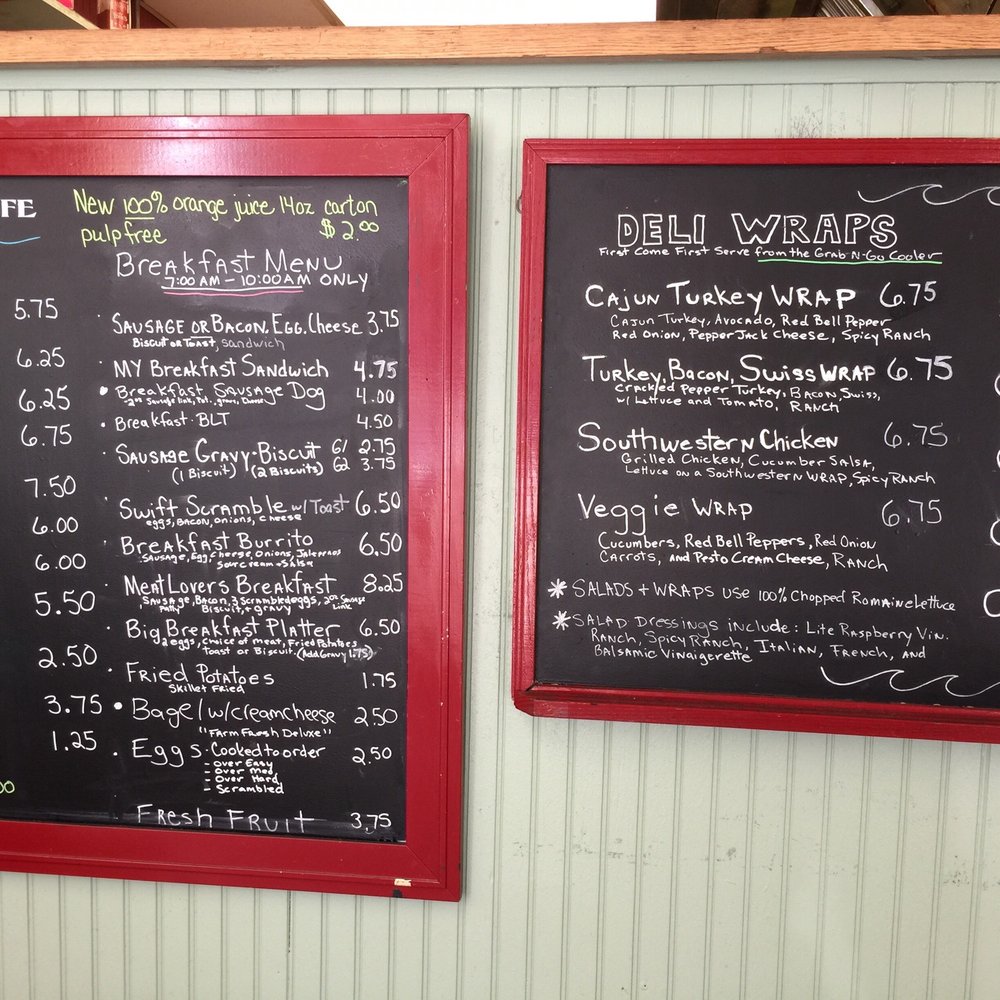 FE
5.75
6.25
6.25
6.75
7.50
6.00
6.00
5.50
2.50
3.75
1.25
00
New 100% orange juice 14oz carton
pulp free $2.00
Breakfast Menu
7:00 AM - 10:00AM ONLY
Sausage or Bacon, Egg, Cheese 3.75
Biscuit or Toast, Sandwich
My Breakfast Sandwich 4.75
• Breakfast Sausage Dog 4.00
• Breakfast BLT 4.50
Sausage Gravy-Biscuit 61 2.75
(1 Biscuit) (2 Biscuits) 62 3.75
Swift Scramble w/Toast 6.50
eggs, Bacon, Onions, Cheese
Breakfast Burrito 6.50
Sausage, Egg, Cheese, Onions, Jalepenos
Sour cream + Salsa
Meat Lovers Breakfast 8.25
Sausage Patty, Bacon, 3 Scrambled eggs, 2oz Sausage Link
Biscuit + gravy
Big Breakfast Platter 6.50
2 eggs, Choice of meat, Fried Potatoes
Toast or Biscuit. (Add Gravy 1.75)
• Fried Potatoes 1.75
Skillet Fried
• Bagel w/creamcheese 2.50
"Farm Fresh Deluxe"
• Eggs • Cooked to order 2.50
- Over Easy
- Over Med
- Over Hard
- Scrambled
Fresh Fruit 3.75
DELI WRAPS
First Come First Serve from the Grab-N-Go Cooler
Cajun Turkey Wrap 6.75
Cajun Turkey, Avocado, Red Bell Pepper
Red Onion, Pepper Jack Cheese, Spicy Ranch
Turkey, Bacon, Swiss Wrap 6.75
Cracked Pepper Turkey, Bacon, Swiss,
w/ Lettuce and Tomato, Ranch
Southwestern Chicken 6.75
Grilled Chicken, Cucumber Salsa,
Lettuce on a Southwestern Wrap, Spicy Ranch
Veggie Wrap 6.75
Cucumbers, Red Bell Peppers, Red Onion
Carrots, and Pesto Cream Cheese, Ranch
* Salads + Wraps use 100% Chopped Romaine Lettuce
* Salad Dressings include: Lite Raspberry Vin.
Ranch, Spicy Ranch, Italian, French, and
Balsamic Vinaigerette